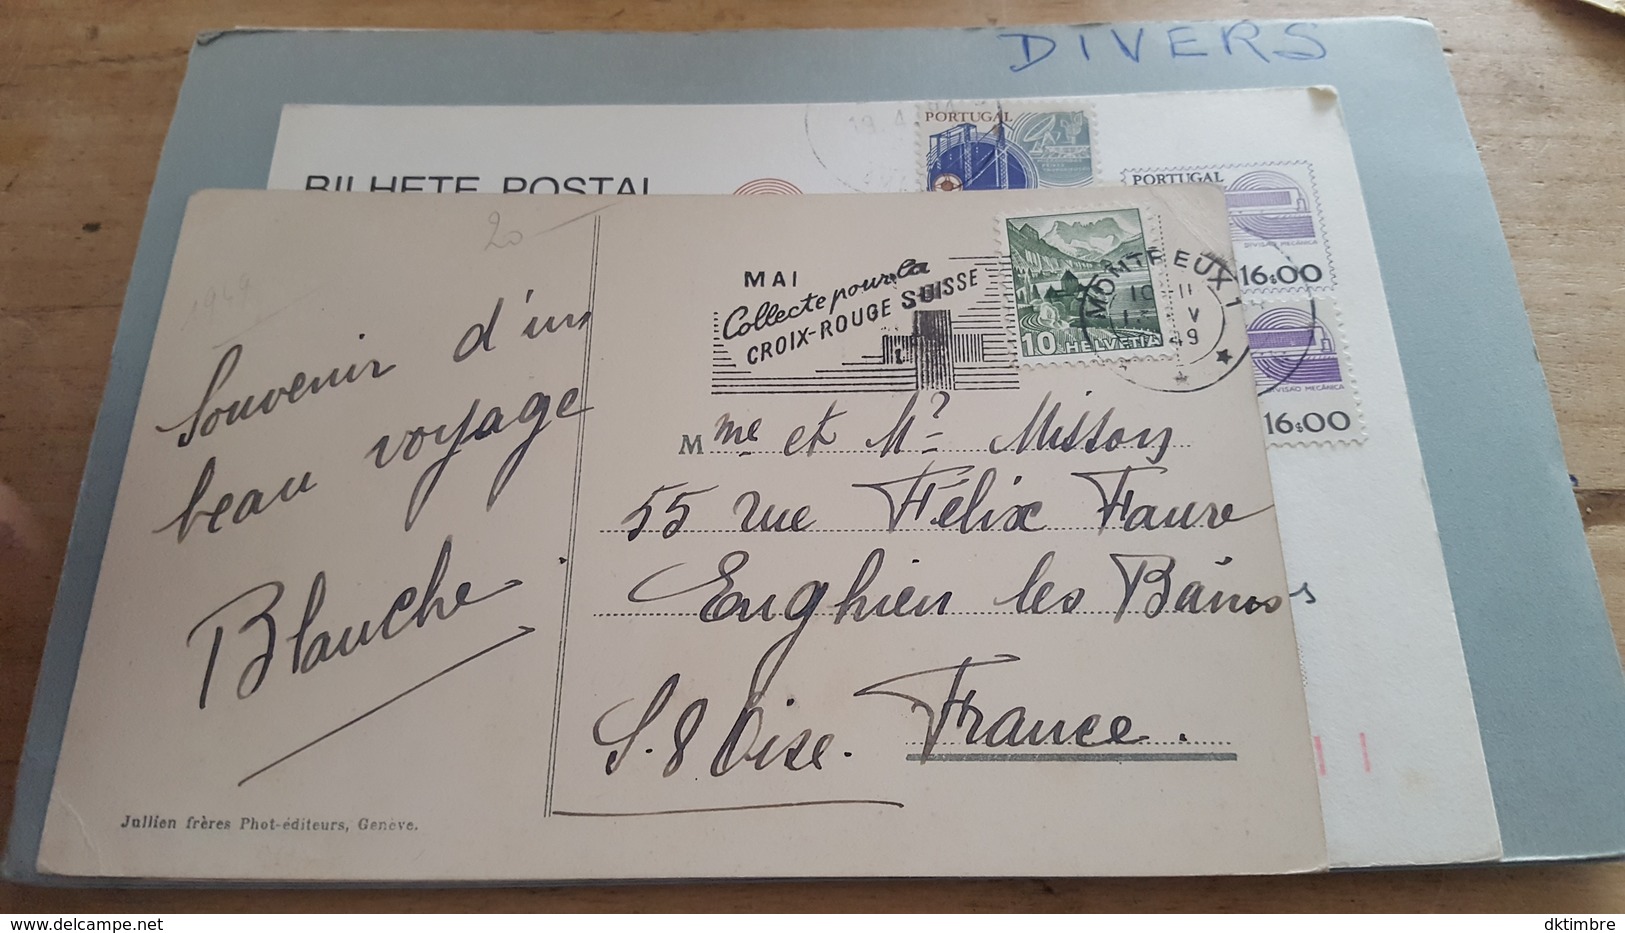 DIVERS
PORTUGAL
BILHETE POSTAL
PORTUGAL
DIVISÃO MECÂNICA
16$00
DIVISÃO MECÂNICA
16$00
20
1949
MAI
Collecte pour la
CROIX-ROUGE SUISSE
10 HELVETIA
MONTREUX 1
10 II
V
49
Souvenir d'un
beau voyage
Blanche
Mme et Mr Misson
55 rue Félix Faure
Enghien les Bains
S. & Oise.
France.
Jullien frères Phot-éditeurs, Genève.
delcampe.net
dktimbre